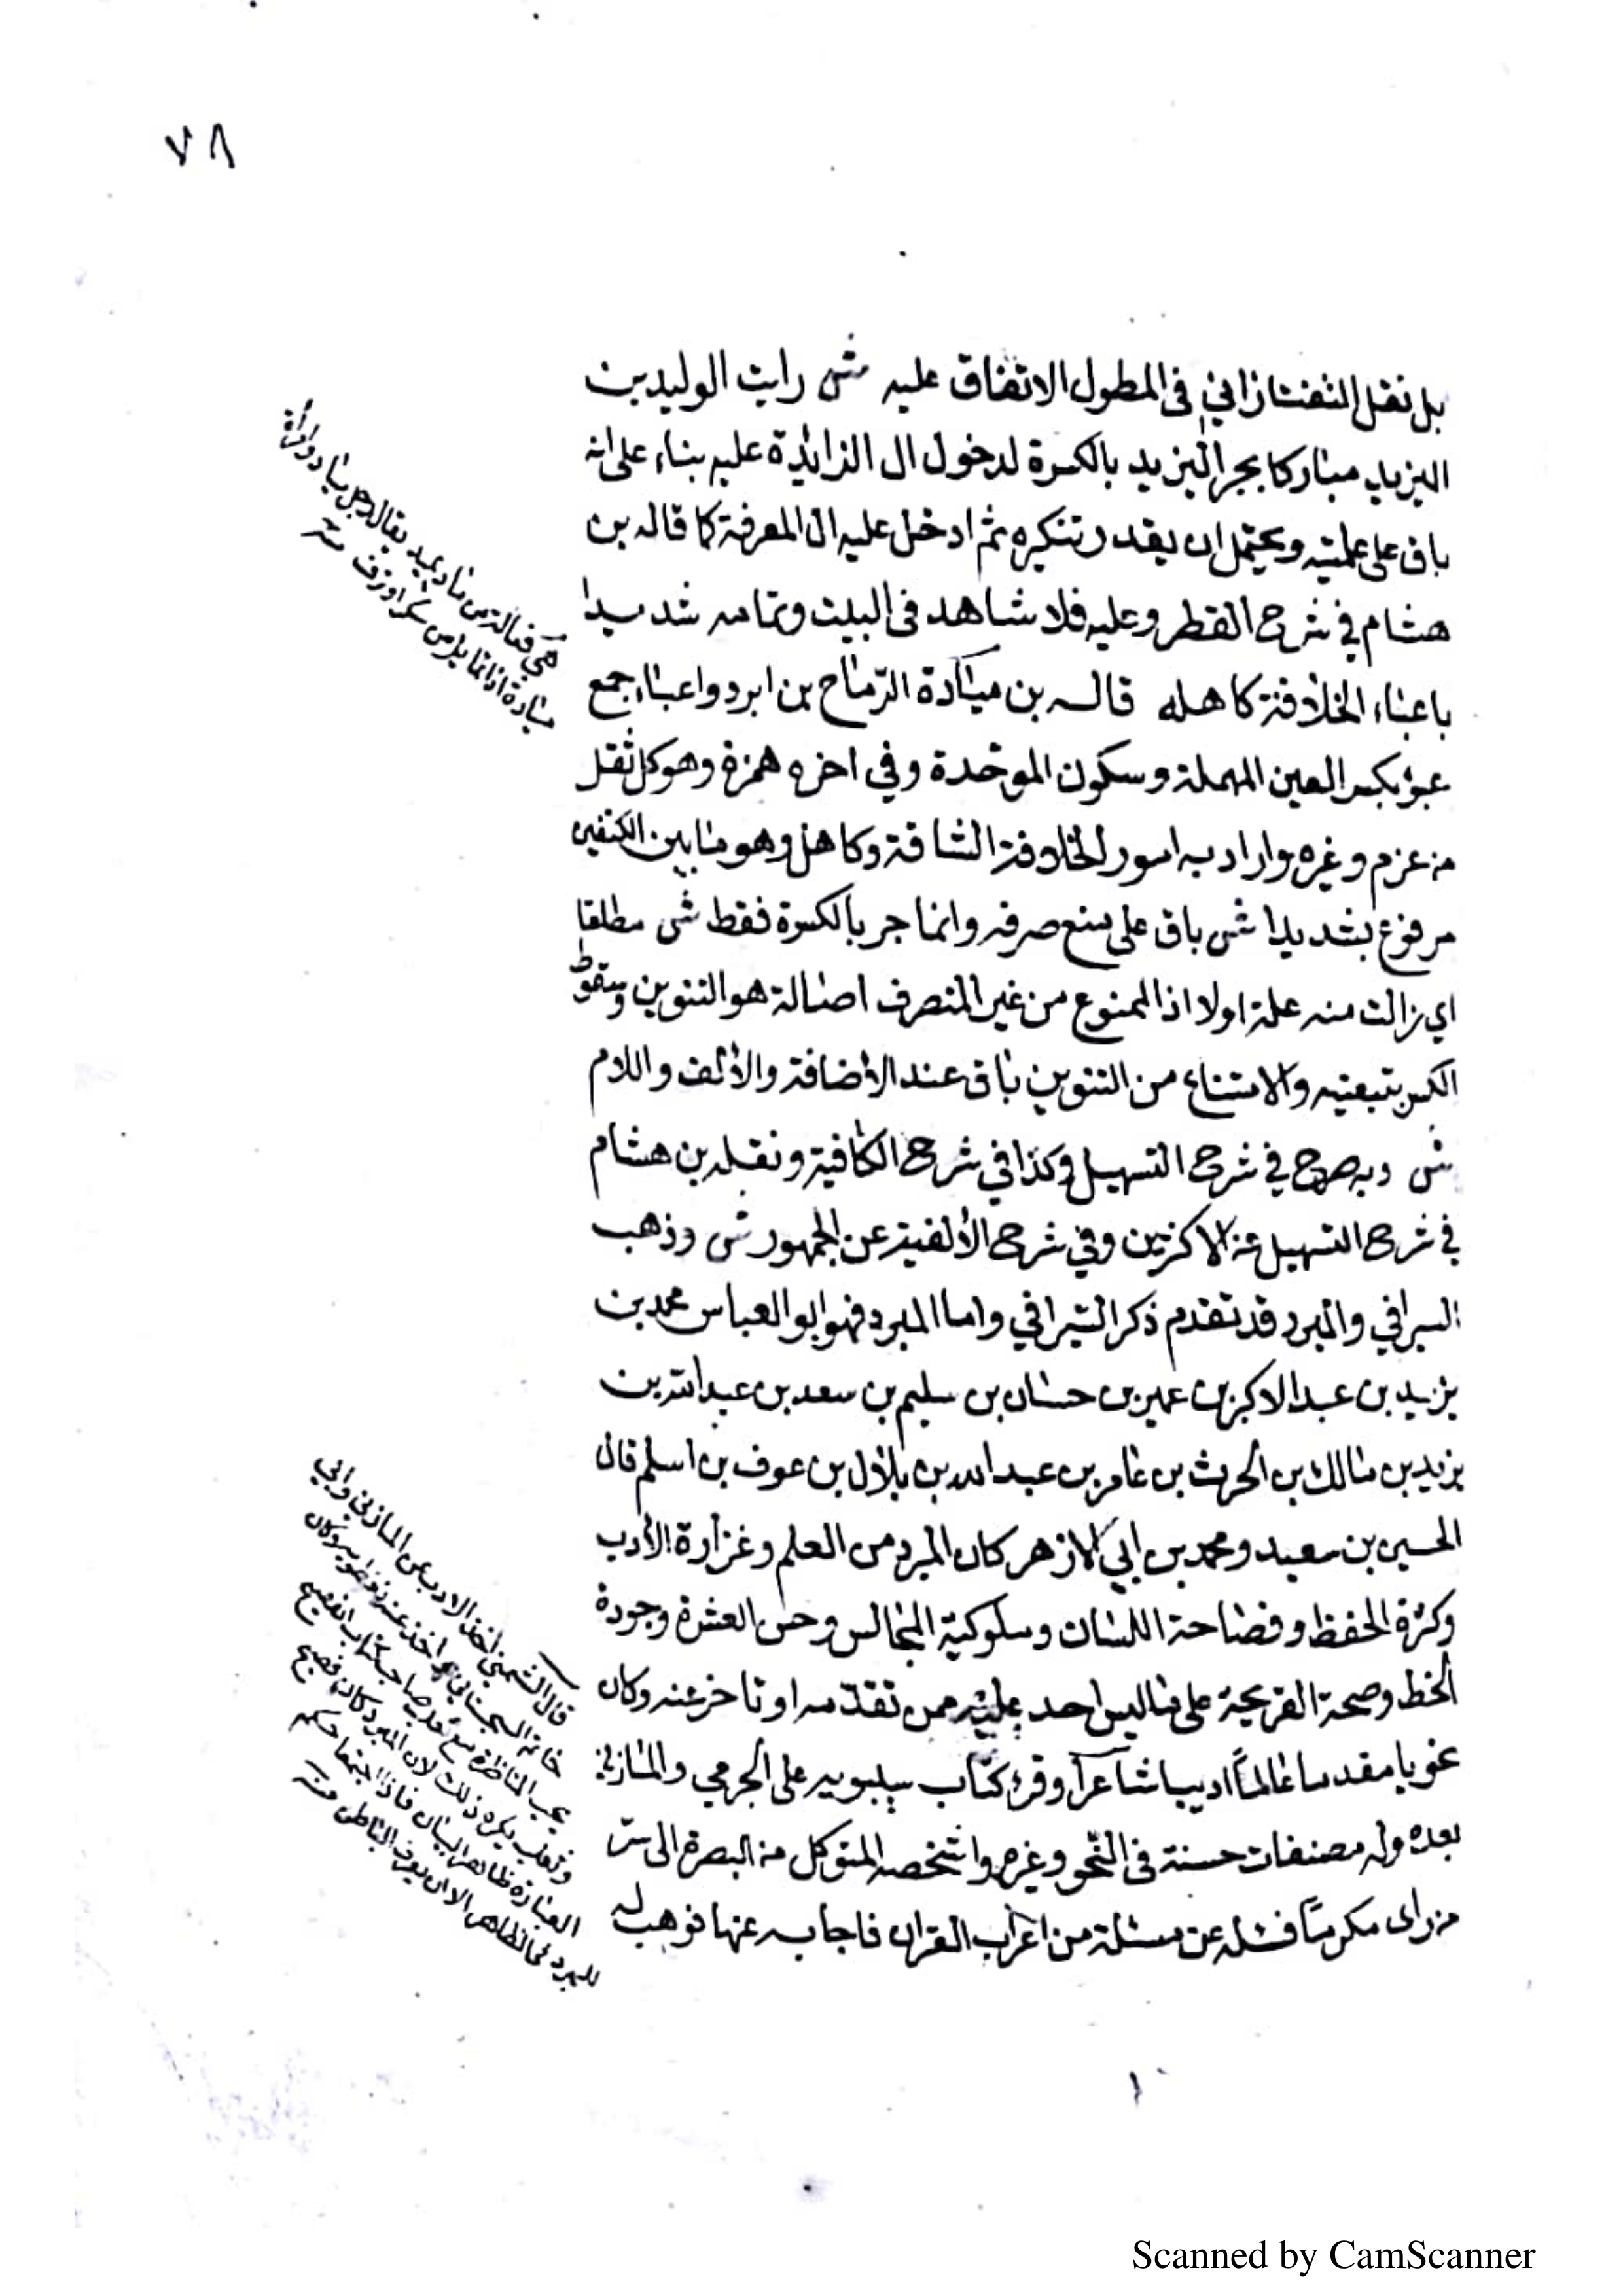 ٧٨
بل نقل التفتازاني في المطول الاتفاق عليه ش رايت الوليد بن
اليزيد مباركا بجر اليزيد بالكسرة لدخول ال الزايدة عليه بناء على انه
باق على علميته ويحتمل ان يقدر تنكيره ثم ادخل عليه ال المعرفة كما قاله بن
هشام في شرح القطر وعليه فلا شاهد في البيت وتمامه شديدا
باعباء الخلافة كاهله قاله بن ميّادة الرّماح بن ابرد واعباء جمع
عبؤ بكسر العين المهملة وسكون الموحّدة وفي اخره همزة وهو كل ثقل
من عزم وغيره واراد به امور الخلافة الشاقة وكاهل وهو ما بين الكتفين
مرفوع بشديدا ش باق على منع صرفه وانما جر بالكسرة فقط ش مطلقا
اي زالت منه علة اولا اذ الممنوع من غير المنصرف اصالة هو التنوين وسقوط
الكسر بتبعيته والامتناع من التنوين باق عند الاضافة والالف واللام
ش وبه صرح في شرح التسهيل وكذا في شرح الكافية ونقله بن هشام
في شرح التسهيل عن الاكثرين وفي شرح الألفية عن الجمهور ش وذهب
السيرافي والمبرد قد تقدم ذكر السيرافي واما المبرد فهو ابو العباس محمد بن
يزيد بن عبد الاكبر بن عمير بن حسان بن سليم بن سعد بن عبد الله بن
يزيد بن مالك بن الحرث بن عامر بن عبد الله بن بلال بن عوف بن اسلم قال
الحسين بن سعيد ومحمد بن ابي الازهر كان المبرد من العلم وغزارة الأدب
وكثرة الحفظ وفصاحة اللسان وملوكية المجالس وحسن العشرة وجودة
الخط وصحة القريحة على ما ليس احد عليه ممن تقدمه او تاخر عنه وكان
نحويا مقدما عالماً اديبا شاعرا وقرئ كتاب سيبويه على الجرمي والمازني
بعده وله مصنفات حسنة في النحو وغيره واشخصه المتوكل من البصرة الى سرّ
من راى مكرما فسئله عن مسئلة من اعراب القران فاجابه عنها فوهب له
قال الشمني اخذ الادب عن المازني وابي
حاتم السجستاني واخذ عنه نفطويه وكان
يحب المناظرة مع ثعلب صاحب كتاب الفصيح
وثعلب يكره ذلك لان المبرد كان فصيح
العبارة ظاهر البيان فاذا اجتمعا حكم
للمبرد في الظاهر الى ان يعرف الباطن منه
Scanned by CamScanner